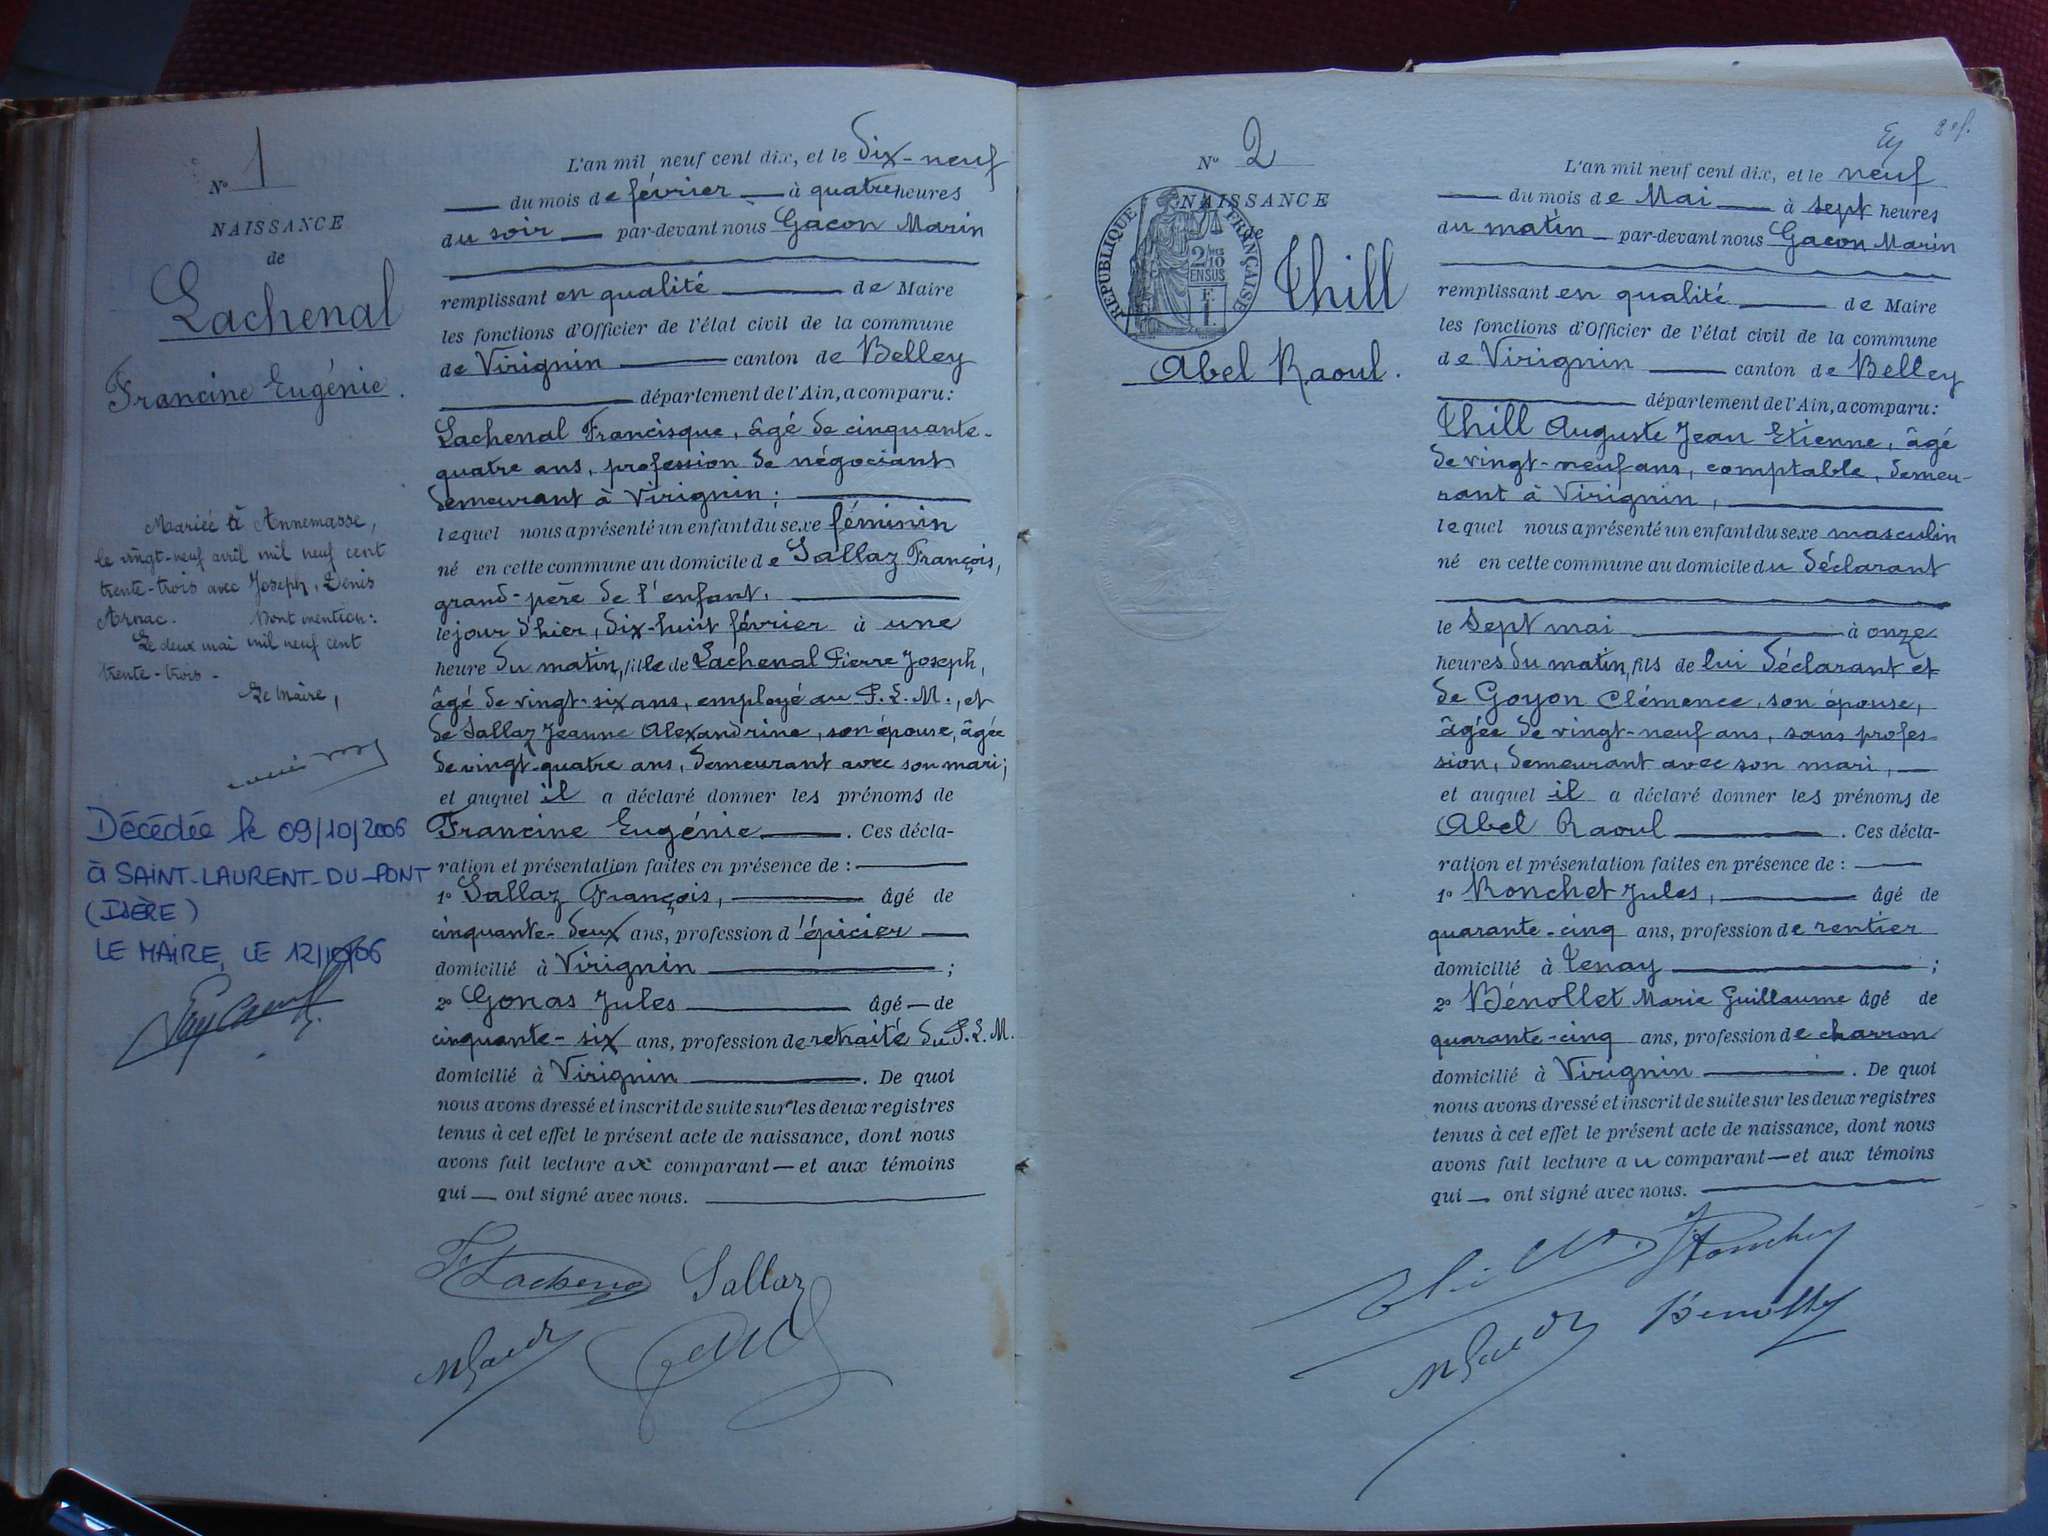 N° 1
NAISSANCE
de
Lachenal
Francine Eugénie.
Mariée à Annemasse,
le vingt-neuf avril mil neuf cent
trente-trois avec Joseph, Denis
Arnac. Dont mention:
Le deux mai mil neuf cent
trente-trois -
Le Maire,
Décédée le 09/10/2006
à SAINT-LAURENT-DU-PONT
(ISÈRE)
LE MAIRE, LE 12/10/06
L'an mil neuf cent dix, et le dix-neuf
du mois de février à quatre heures
du soir par-devant nous Gacon Marin
remplissant en qualité de Maire
les fonctions d'Officier de l'état civil de la commune
de Virignin canton de Belley
département de l'Ain, a comparu:
Lachenal Francisque, âgé de cinquante-
quatre ans, profession de négociant
demeurant à Virignin;
lequel nous a présenté un enfant du sexe féminin
né en cette commune au domicile de Sallaz François,
grand-père de l'enfant.
le jour d'hier, dix-huit février à une
heure du matin, fille de Lachenal Pierre Joseph,
âgé de vingt-six ans, employé au P.L.M., et
de Sallaz Jeanne Alexandrine, son épouse, âgée
de vingt-quatre ans, demeurant avec son mari;
et auquel il a déclaré donner les prénoms de
Francine Eugénie. Ces décla-
ration et présentation faites en présence de:
1° Sallaz François, âgé de
cinquante-deux ans, profession d'épicier
domicilié à Virignin;
2° Gonas Jules âgé — de
cinquante-six ans, profession de retraité du P.L.M.
domicilié à Virignin. De quoi
nous avons dressé et inscrit de suite sur les deux registres
tenus à cet effet le présent acte de naissance, dont nous
avons fait lecture au comparant — et aux témoins
qui — ont signé avec nous.
F. Lachenal Sallaz
N° 2
NAISSANCE
de
RÉPUBLIQUE FRANÇAISE
2/10 EN SUS
Thill
Abel Raoul.
L'an mil neuf cent dix, et le neuf
du mois de Mai à sept heures
du matin par-devant nous Gacon Marin
remplissant en qualité de Maire
les fonctions d'Officier de l'état civil de la commune
de Virignin canton de Belley
département de l'Ain, a comparu:
Thill Auguste Jean Etienne, âgé
de vingt-neuf ans, comptable, demeu-
rant à Virignin,
lequel nous a présenté un enfant du sexe masculin
né en cette commune au domicile du déclarant
le sept mai à onze
heures du matin, fils de lui déclarant et
de Goyon Clémence, son épouse,
âgée de vingt-neuf ans, sans profes-
sion, demeurant avec son mari,
et auquel il a déclaré donner les prénoms de
Abel Raoul. Ces décla-
ration et présentation faites en présence de:
1° Ronchet Jules, âgé de
quarante-cinq ans, profession de rentier
domicilié à Tenay;
2° Bénollet Marie Guillaume âgé de
quarante-cinq ans, profession de charron
domicilié à Virignin. De quoi
nous avons dressé et inscrit de suite sur les deux registres
tenus à cet effet le présent acte de naissance, dont nous
avons fait lecture au comparant — et aux témoins
qui — ont signé avec nous.